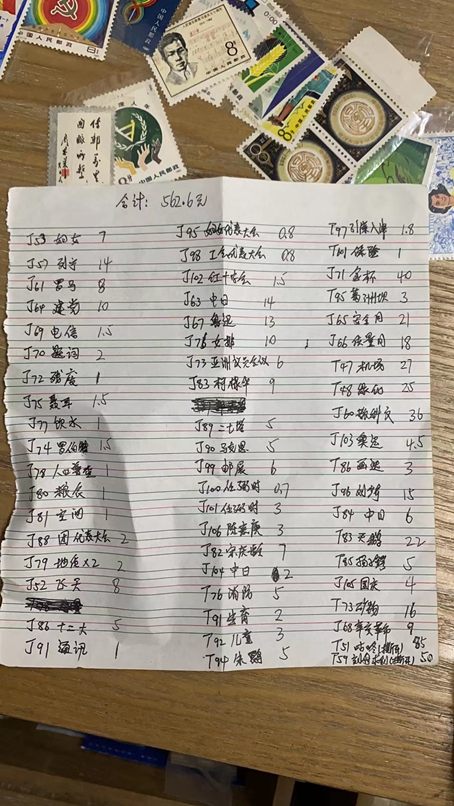 中国人民邮政
8分
合计: 562.6元
J53 妇女 7
J57 刘守 14
J61 罗马 8
J64 建党 10
J69 电信 1.5
J70 墨词 2
J72 残废 1
J75 聂耳 1.5
J77 饮水 1
J74 罗伯特 1.5
J78 人口普查 1
J80 粮食 1
J81 空间 1
J88 团代表大会 2
J79 地质×2 2
J52 飞天 8
J86 十二大 5
J91 通讯 1
J95 妇女代表大会 0.8
J98 工会代表大会 0.8
J102 红十字会 1.5
J63 中日 14
J67 鲁迅 13
J76 女排 10
J73 亚洲议员会议 6
J83 柯棣华 9
J89 二七塔 5
J90 马克思 5
J99 邮展 6
J100 任弼时 0.7
J101 任弼时 3
J106 陈嘉庚 3
J82 宋庆龄 7
J104 中日 2
T76 消防 5
T91 生育 2
T92 儿童 3
T94 朱鹮 5
T97 引滦入津 1.8
T101 保险 1
J71 金杯 40
T95 葛洲坝 3
J65 安全月 21
J66 质量月 18
T47 机场 27
T48 36
J103 奥运 4.5
T86 西返 3
J96 刘少奇 15
J84 中日 6
T83 天鹅 22
T85 5
J105 国庆 4
T73 矿物 16
J68 辛亥革命 9
T51 咕咚(撕开) 85
T59 50